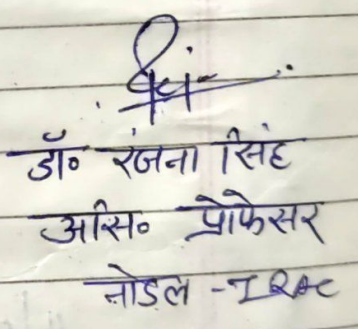 डॉ० रंजना सिंह
असि० प्रोफेसर
नोडल - IQAC